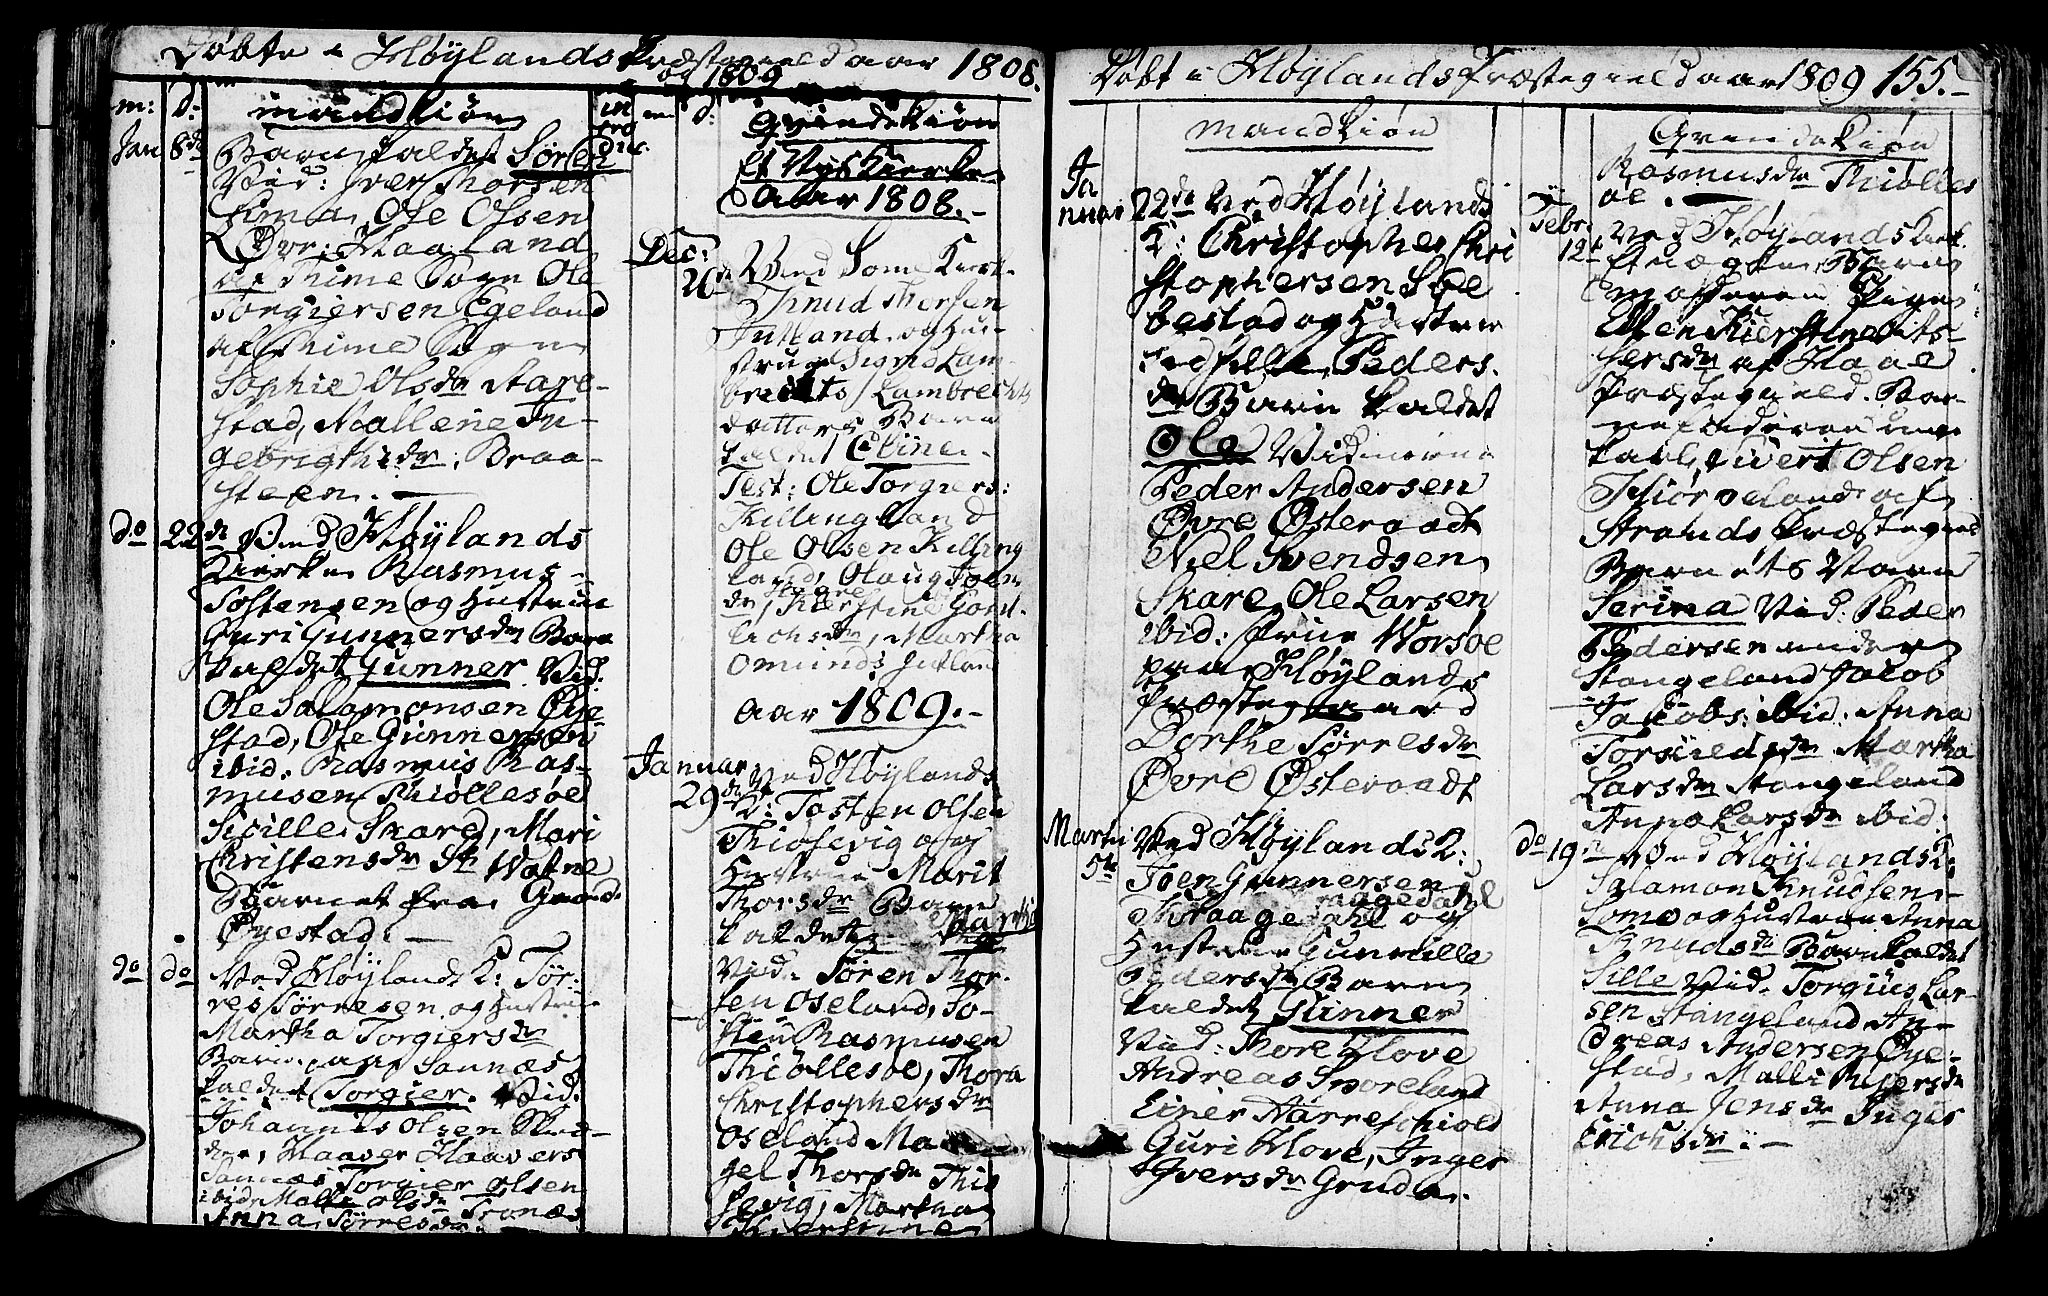 Døbte i Høylands Præstegield aar 1808.
og 1809
m: d:
mandkiøn
Jan 8de Barn kaldet Søren
Vid: Iver Thorsen
Ole Olsen
Øvr: Haaland
af Thime Sogn Ole
Torgiersen Egeland
af Thime Sogn
Sophie Olsdr Stare-
stad, Mallene In-
gebrigthsdr: Braa-
steen. —
do 22de Ved Høylands
Kierke Rasmus
Tostensen og Hustrue
Guri Gunnersdr Barn
kaldet Gunner Vid:
Ole Salomonsen Øye-
stad, Ole Gunnersen
ibid. Rasmus Ras-
musen Thiøllesøe
Sicille Skare, Mari
Christensdr St Watne
Barnet fra Grands
Øyestad. —
do do Ved Høylands K: Tør-
res Tørresen og Hustrue
Martha Torgiersdr
Barn af Sannæs
kaldet Torgier. Vid:
Johannis Olsen
Haaver Haavers
Sannæs Torgier Olsen
ibid Malli Olsdr Tronæs
Anna Tørresdr
m d:
Qvindekiøn
et Nyt Kierke
Aar 1808.-
Dec:
26de Ved Some Kierk
Knud Thorsen
Jutland og Hu-
strue Sigrid Lam-
brechts / Lambrechts
datters Barn
kaldet Eline.
Test: Ole Torgiers:
Killingland
Ole Olsen Killing
land, Olaug Joen
dr, Skare Kierstine Gont
lichsdr, Martha
Omunds Jutland
Aar 1809.-
Januar Ved Høylands
29de K: Tosten Olsen
Thiosevig og
Hustrue Marit
Thorsdr Barn
kaldet Martha
Vid. Søren Thor-
sen Oseland, To-
sten Rasmusen
Thiøllesøe, Thora
Christophersdr
Oseland Ma
gel Thorsdr This
sevig, Martha
Kierstine
Døbt i Høylands Præstegield aar 1809 155.-
mandkiøn
Ja
nuar 22de Ved Høylands
K: Christopher Chri
stophersen Søe
bestad og Hustrue
Sidselle Peders.
dr Barn kaldet
Ole Vidnerne
Peder Andersen
Øvre Østeraadt
Niel Svendsen
Skare, Ole Larsen
ibid: Frue Worsøe
paa Høylands
Præstegaard
Dorthe Tørresdr
Øvre Østeraadt
Martii Ved Høylands K:
5te Joen Gunnersen
raggedahl
Thraagedahl og
Hustrue Gunnille
Pedersdr Barn
kaldet Gunner
Vid: Thore Hove
Andreas Sporeland
Einer Nærreschiold
Guri Hove, Inger
Iversdr Gruda.
Qvindekiøn
Rasmusdr Thiølles
øe. —
Febr. Ved Høylands Kierk.
12te
Pige
Ellen Kierstine
dr af Haae
Præstegield. Bar-
nefaderen
karl, Sivert Olsen
Thiørveland af
Strands Præstegield
Barnets Navn
Serina Vid: Peder
Pedersen
Stangeland Jacob
Jacobs: ibid: Anna
Torsteds dr Martha
Larsdr Stangeland
Anna Larsdr ibid:
do 19n Ved Høylands K:
Salamon Knudsen
Some og Hustrue Anna
Knudsdr Barn kaldet
Sille Vid. Torgiius Lar-
sen Stangeland An-
dreas Andersen Øye-
stad, Malli Pedersdr
Anna Jensdr Inger
Erichsdr: —